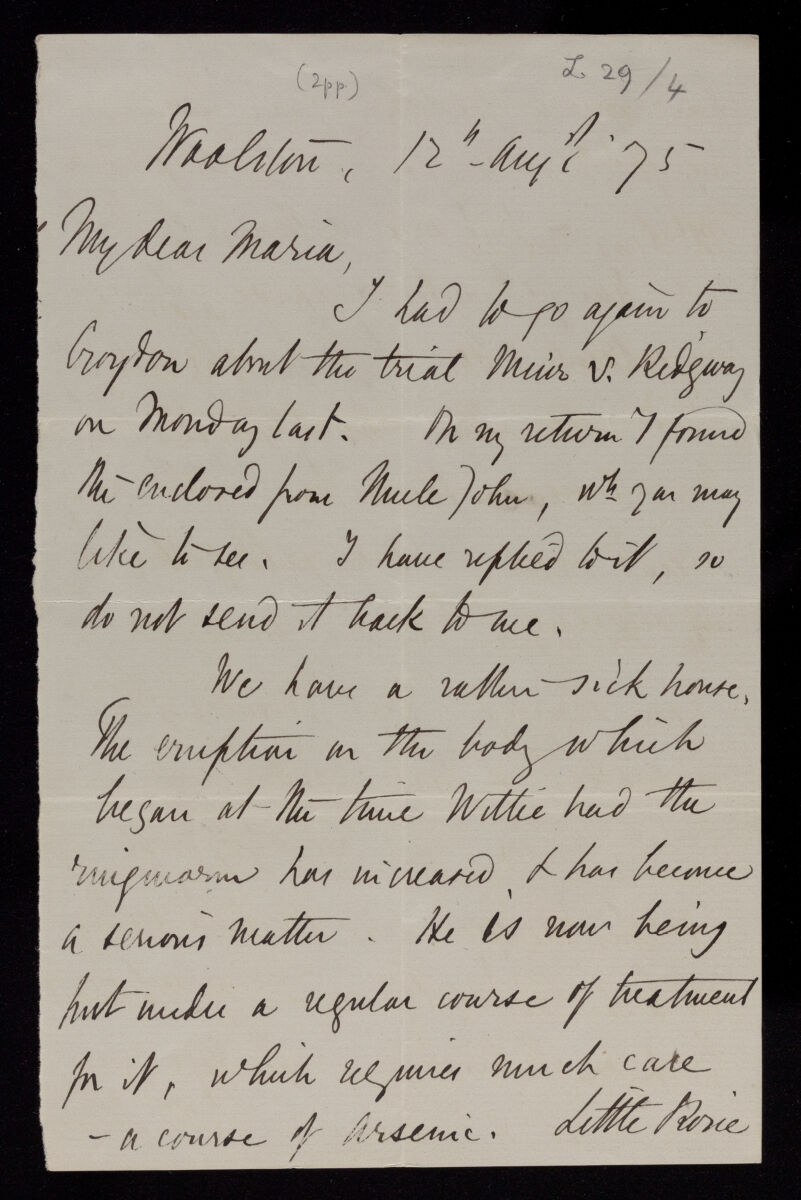 (2pp)
L. 29/4
Woolston, 12th Augst '75
My dear Maria,
I had to go again to
Croydon about the trial Muir v. Ridgway
on Monday last. On my return I found
the enclosed from Uncle John, wh you may
like to see. I have replied to it, so
do not send it back to me.
We have a rather sick house.
The eruption on the body which
began at the time Willie had the
ringworm has increased, & has become
a serious matter. He is now being
put under a regular course of treatment
for it, which requires much care
– a course of Arsenic. Little Rosie